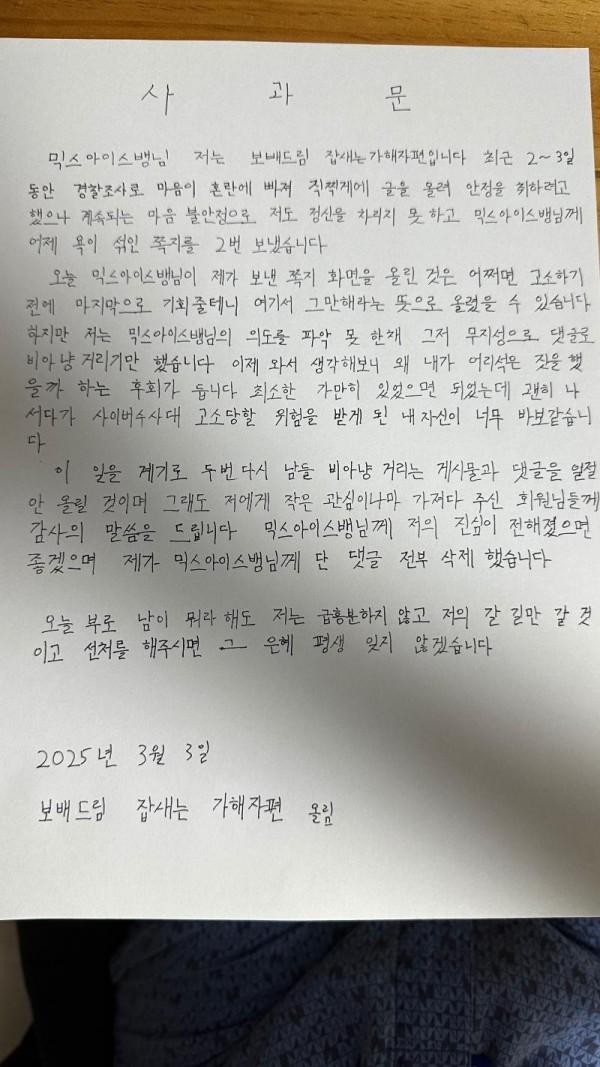 사 과 문
믹스아이스뱅님 저는 보배드림 잡새는가해자편입니다 최근 2~3일
동안 경찰조사로 마음이 혼란에 빠져 직찍게에 글을 올려 안정을 취하려고
했으나 계속되는 마음 불안정으로 저도 정신을 차리지 못 하고 믹스아이스뱅님께
어제 욕이 섞인 쪽지를 2번 보냈습니다
오늘 믹스아이스뱅님이 제가 보낸 쪽지 화면을 올린 것은 어쩌면 고소하기
전에 마지막으로 기회줄테니 여기서 그만해라는 뜻으로 올렸을 수 있습니다
하지만 저는 믹스아이스뱅님의 의도를 파악 못 한채 그저 무지성으로 댓글로
비아냥 거리기만 했습니다 이제 와서 생각해보니 왜 내가 어리석은 짓을 했
을까 하는 후회가 듭니다 최소한 가만히 있었으면 되었는데 괜히 나
서다가 사이버수사대 고소당할 위험을 받게 된 내자신이 너무 바보같습니
다
이 일을 계기로 두번다시 남들 비아냥 거리는 게시물과 댓글을 일절
안 올릴 것이며 그래도 저에게 작은 관심이나마 가져다 주신 회원님들께
감사의 말씀을 드립니다 믹스아이스뱅님께 저의 진심이 전해졌으면
좋겠으며 제가 믹스아이스뱅님께 단 댓글 전부 삭제 했습니다
오늘 부로 남이 뭐라 해도 저는 급흥분하지 않고 저의 갈 길만 갈 것
이고 선처를 해주시면 그 은혜 평생 잊지 않겠습니다
2025년 3월 3일
보배드림 잡새는 가해자편 올림